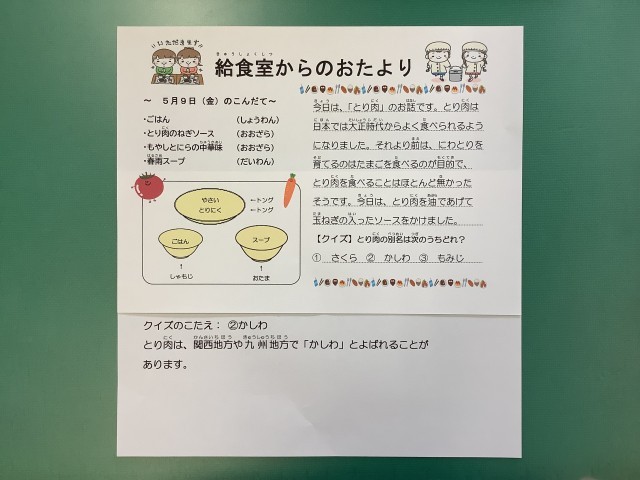 いただきます
給食室からのおたより
～ 5月9日（金）のこんだて～
・ごはん （しょうわん）
・とり肉のねぎソース （おおざら）
・もやしとにらの中華味 （おおざら）
・春雨スープ （だいわん）
やさい ←トング
とりにく ←トング
ごはん スープ
↑ ↑
しゃもじ おたま
今日は、「とり肉」のお話です。とり肉は
日本では大正時代からよく食べられるよう
になりました。それより前は、にわとりを
育てるのはたまごを食べるのが目的で、
とり肉を食べることはほとんど無かった
そうです。今日は、とり肉を油であげて
玉ねぎの入ったソースをかけました。
【クイズ】とり肉の別名は次のうちどれ？
① さくら ② かしわ ③ もみじ
クイズのこたえ： ②かしわ
とり肉は、関西地方や九州地方で「かしわ」とよばれることが
あります。